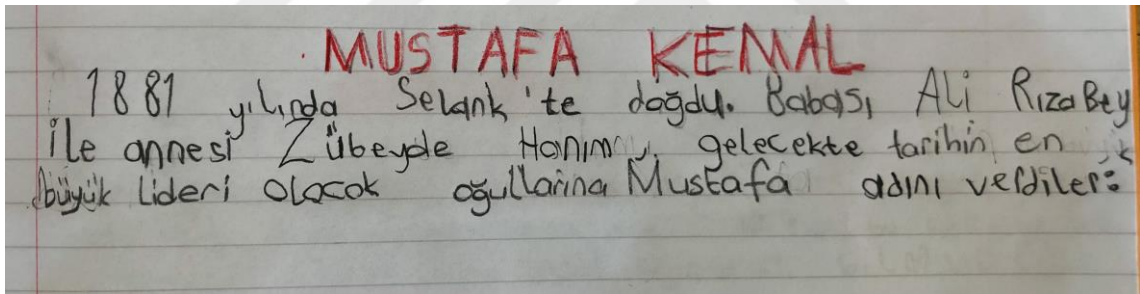 MUSTAFA KEMAL
1881 yılında Selank'te doğdu. Babası Ali Rıza Bey
ile annesi Zübeyde Hanım gelecekte tarihin en
büyük lideri olacak oğullarına Mustafa adını verdiler.